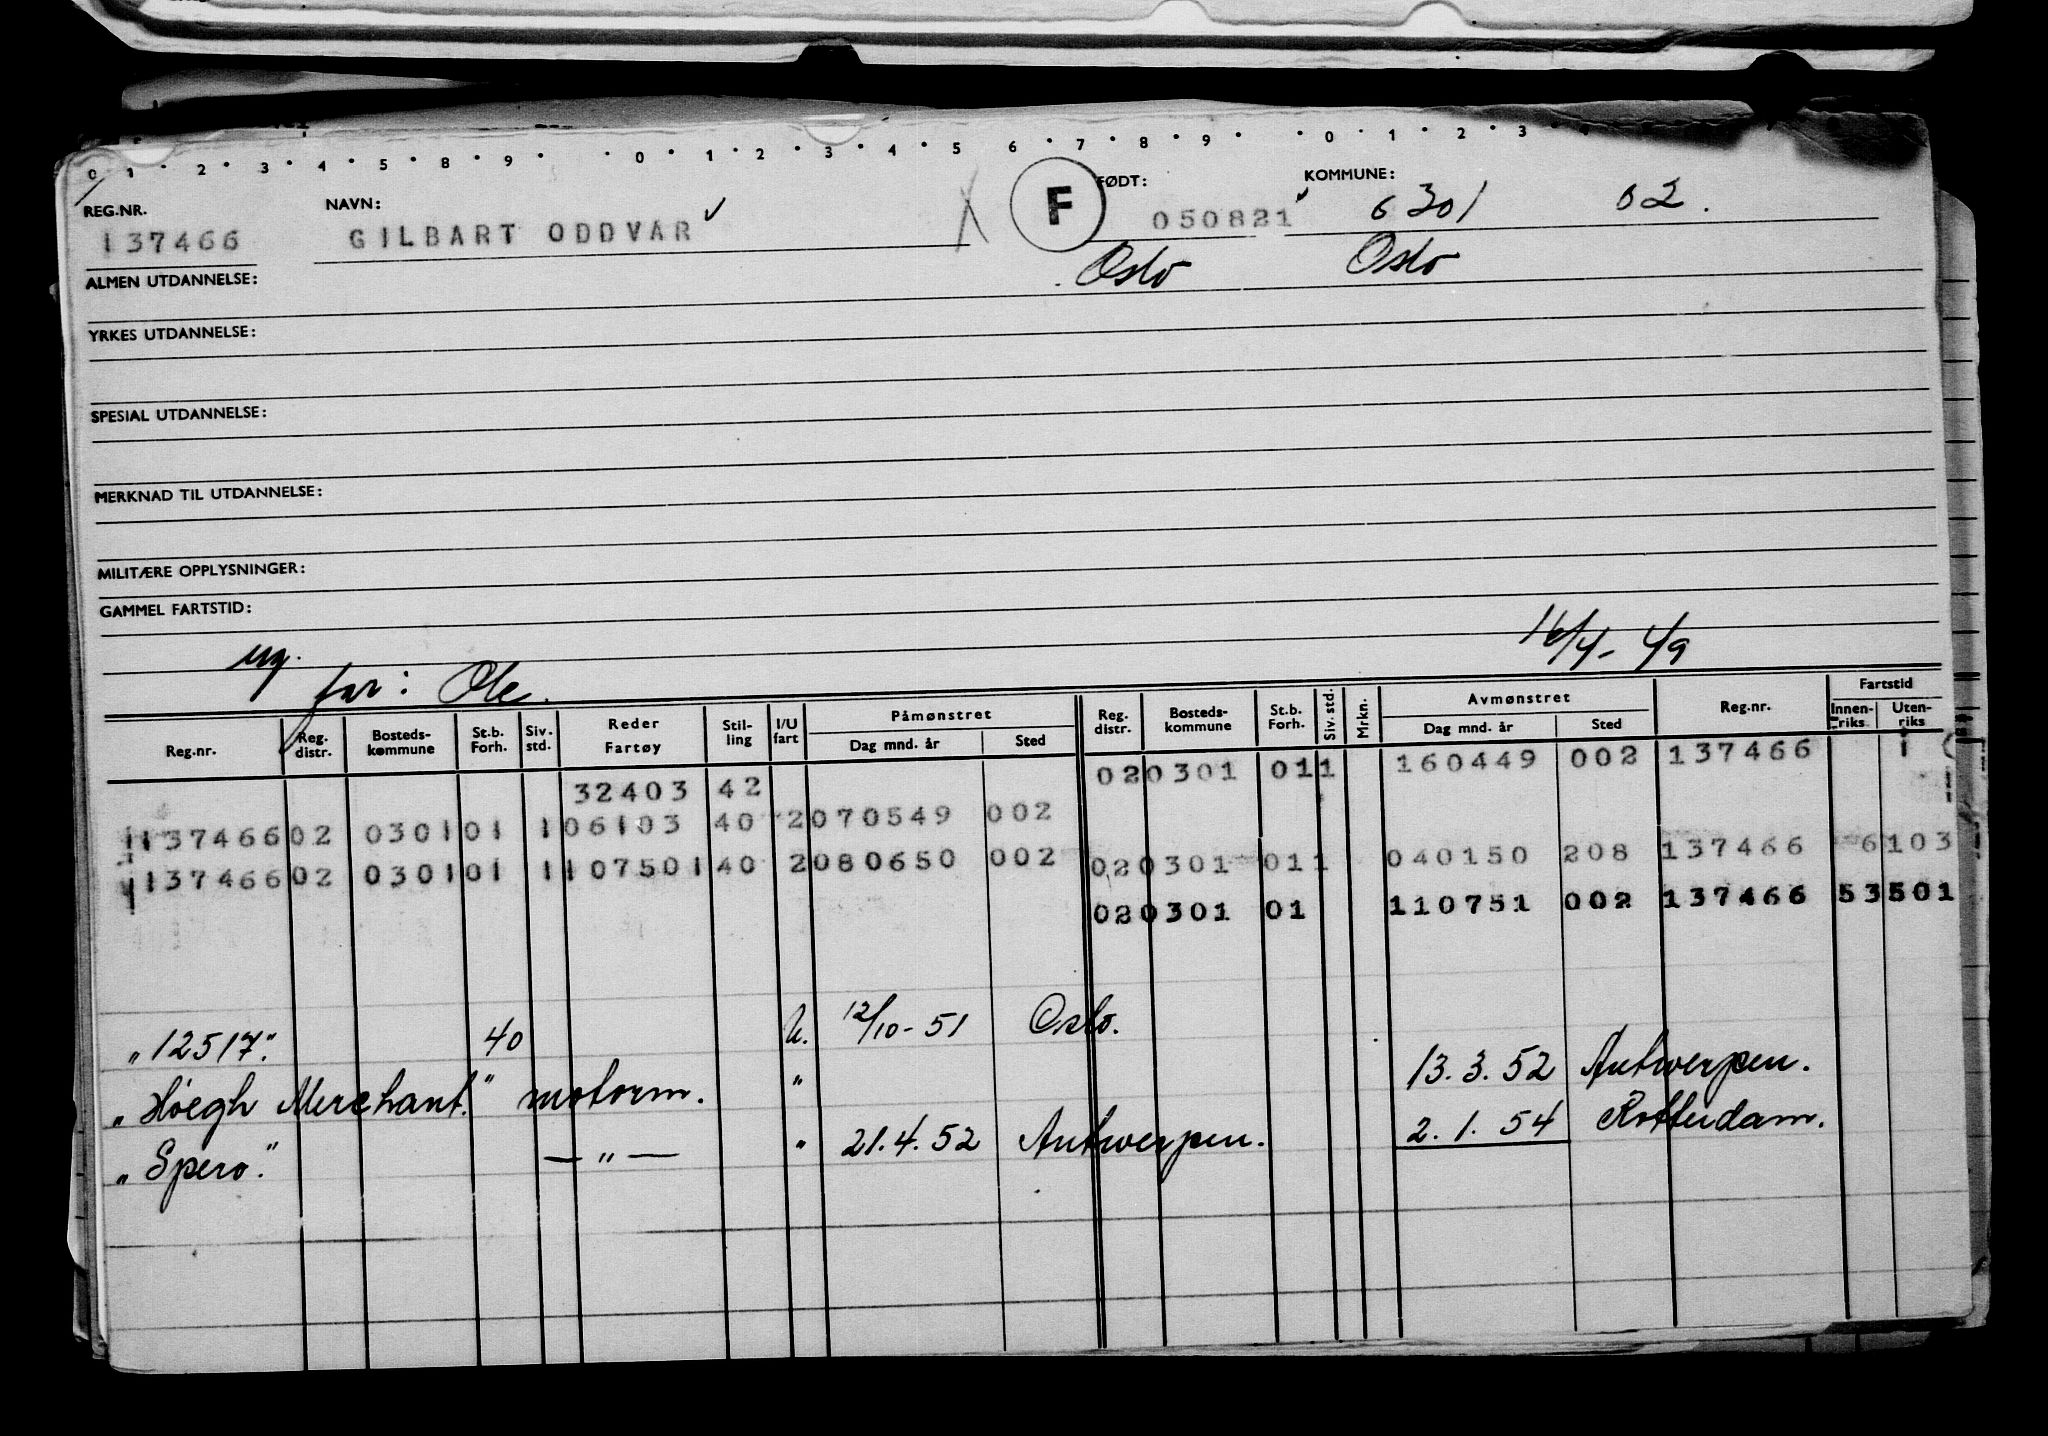 0 1 2 3 4 5 8 9 0 1 2 3 4 5 6 7 8 9 0 1 2 3
REG.NR. NAVN: F FØDT: KOMMUNE:
137466 GILBART ODDVAR 050821 0301 02.
Oslo Oslo
ALMEN UTDANNELSE:
YRKES UTDANNELSE:
SPESIAL UTDANNELSE:
MERKNAD TIL UTDANNELSE:
MILITÆRE OPPLYSNINGER:
GAMMEL FARTSTID:
16/4-49
ug. far: Ole.
Reg.nr. Reg. distr. Bosteds-kommune St.b. Forh. Siv. std. Reder Fartøy Stil-ling I/U fart Påmønstret Dag mnd. år Sted Reg. distr. Bosteds-kommune St.b. Forh. Siv. std. Mrkn. Avmønstret Dag mnd. år Sted Reg.nr. Fartstid Innen-riks Uten-riks
32403 42 020301 011 160449 002 137466 1
113746602 030101 106103 40 2070549 002
113746602 030101 1107501 40 2080650 002 020301 011 040150 208 137466 6103
020301 01 110751 002 137466 53501
"12517". 40 U. 12/10-51 Oslo.
"Høegh Merchant." motorm. " 13.3.52 Antwerpen.
"Spero". — " — " 21.4.52 Antwerpen. 2.1.54 Rotterdam.